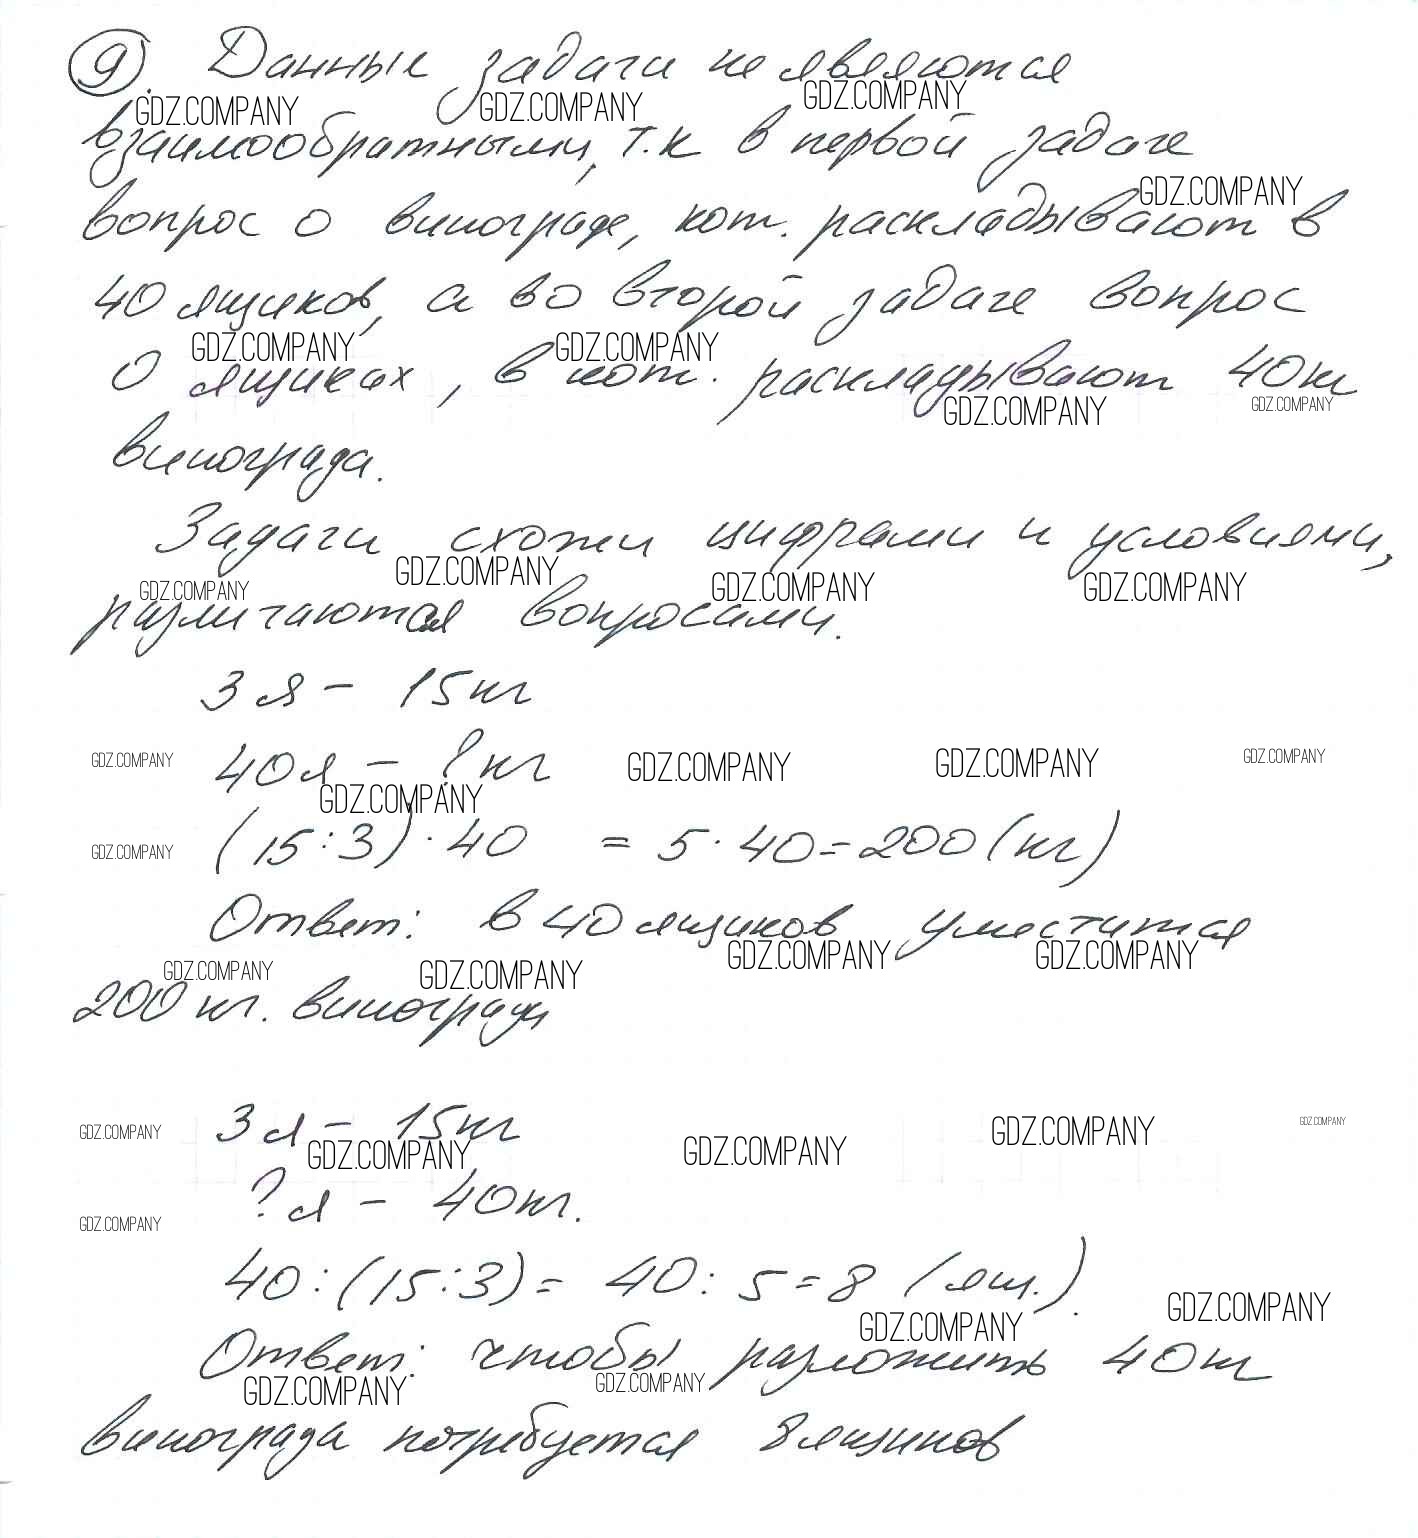 9. Данные задачи не являются
GDZ.COMPANY GDZ.COMPANY GDZ.COMPANY
взаимообратными, т.к в первой задаче
GDZ.COMPANY
вопрос о винограде, кот. раскладывают в
40 ящиков, а во второй задаче вопрос
GDZ.COMPANY GDZ.COMPANY
о ящиках, в кот. раскладывают 40кг
GDZ.COMPANY GDZ.COMPANY
винограда.
Задачи схожи цифрами и условиями,
GDZ.COMPANY GDZ.COMPANY GDZ.COMPANY GDZ.COMPANY
различаются вопросами.
3 я - 15 кг
GDZ.COMPANY 40я - ? кг GDZ.COMPANY GDZ.COMPANY GDZ.COMPANY
GDZ.COMPANY
GDZ.COMPANY (15:3)·40 = 5·40=200(кг)
Ответ: в 40 ящиков уместится
GDZ.COMPANY GDZ.COMPANY GDZ.COMPANY GDZ.COMPANY
200 кг. винограда
GDZ.COMPANY 3 я - 15кг GDZ.COMPANY GDZ.COMPANY
GDZ.COMPANY GDZ.COMPANY
GDZ.COMPANY ? я - 40кг.
40:(15:3)= 40:5=8 (ящ.).
GDZ.COMPANY GDZ.COMPANY
Ответ: чтобы разложить 40кг
GDZ.COMPANY GDZ.COMPANY
винограда потребуется 8 ящиков